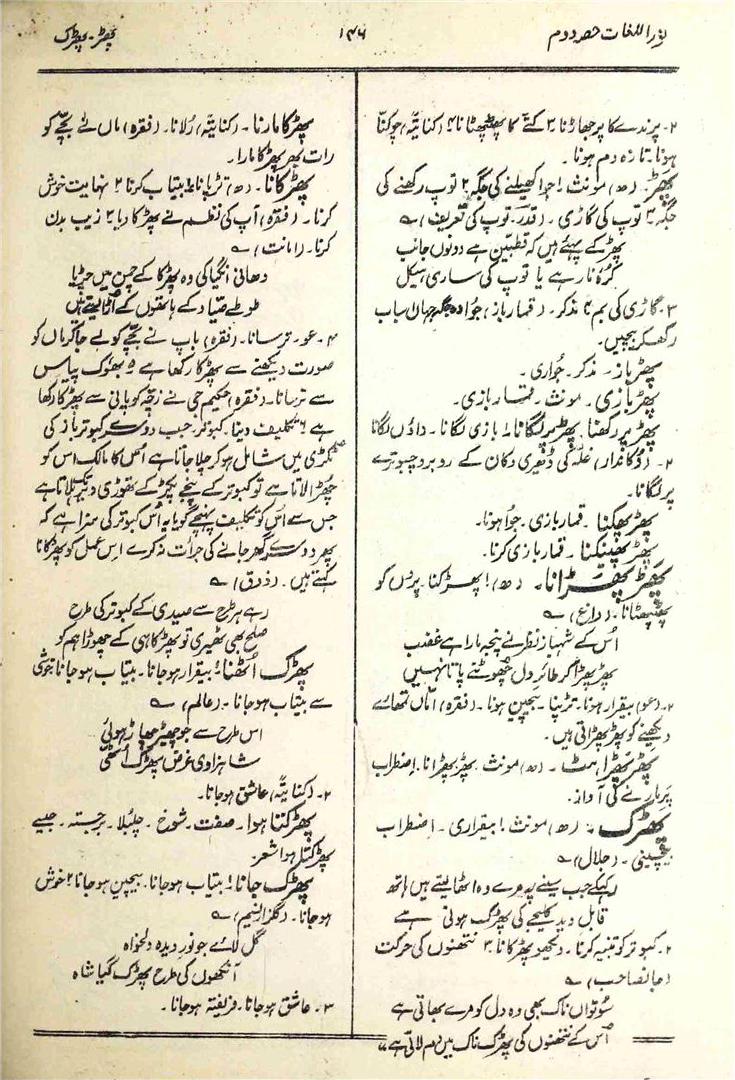 نور اللغات حصہ دوم
۱۴۶
پھڑ۔ پھڑک
۲۔ پرندے کا پر جھاڑنا۔ ۳ کتّے کا پھٹپھٹانا ۴ (کنایتہً) چوکنّا
ہونا۔ تازہ دم ہونا۔
پھڑ۔ (ھ) مونث۔ ۱ جوا کھیلنے کی جگہ ۲ توپ رکھنے کی
جگہ ۳ توپ کی گاڑی۔ (قدر۔ توپ کی تعریف) ؎
پھڑ کے پہئے ہیں کہ قطبین ہے دونوں جانب
کرۂ نار ہے یا توپ کی ساری ہیکل
۳۔ گاڑی کی بم ۴ مذکر۔ (قمار باز) جوا وہ جگہ جہاں سباب
رکھکر بیچیں۔
پھڑ باز۔ مذکر۔ جُواری۔
پھڑ بازی۔ مونث۔ قمار بازی۔
پھڑ پر رکھنا۔ پھڑ پر لگانا۔ ۱ بازی لگانا۔ داؤں لگانا
۲۔ (دُکاندار) غلّہ کی ڈھیری دکان کے روبرو چبوترے
پر لگانا۔
پھڑ پھکنا۔ قمار بازی۔ جوا ہونا۔
پھڑ پھینکنا۔ قمار بازی کرنا۔
پھڑ پھڑانا۔ (ھ) ۱ پھڑکنا۔ پروں کو
پھٹپھٹانا۔ (داغ) ؎
اُس کے شہباز نظر نے پنجہ مارا ہے غضب
پھڑپھڑا کر طائرِ دل چھوٹنے پاتا نہیں
۲۔ (عو) بیقرار ہونا۔ تڑپنا۔ بیچین ہونا۔ (فقرہ) امّاں تمھارے
دیکھنے کو پھڑ پھڑاتی ہیں۔
پھڑ پھڑاہٹ۔ (ھ) مونث۔ پھڑ پھڑانا۔ اضطراب
پر مارنے کی آواز۔
پھڑک۔ (ھ) مونث ۱ بیقراری۔ اضطراب
بیچینی۔ (جلال) ؎
رہکے جب سینے پہ مرے وہ اٹھا لیتے ہیں ہاتھ
قابل دید کلیجے کی پھڑک ہوتی ہے
۲۔ کبوتر کو تنبیہ کرنا۔ دیکھو پھڑکانا۔ ۳ نتھنوں کی حرکت
(جانصاحب) ؎
سُتواں ناک بھی وہ دل کو مرے بھاتی ہے
اُس کے نتھنوں کی پھڑک ناک میں دم لاتی ہے
پھڑکا مارنا۔ (کنایتہً) رُلانا۔ (فقرہ) ماں نے بچّے کو
رات بھر پھڑکا مارا۔
پھڑکانا۔ (ھ) تڑپانا ۱ بیتاب کرنا ۲ نہایت خوش
کرنا۔ (فقرہ) آپ کی نظم نے پھڑکا دیا ۳ زیب بدن
کرنا۔ (امانت) ؎
دھانی انگیا کی وہ پھڑکا کے چمن میں چڑیا
طوطے صیّاد کے ہاتھوں کے اُڑا لیتے ہیں
۴۔ عو۔ ترسانا۔ (فقرہ) باپ نے بچّے کو لے جاکر ماں کو
صورت دیکھنے سے پھڑکا رکھا ہے ۵ بھوک پیاس
سے ترسانا۔ (فقرہ) حکیم جی نے زچّہ کو پانی سے پھڑکا رکھا
ہے ۶ تکلیف دینا۔ کبوتر۔ جب دوسرے کبوتر باز کی
ٹکڑی میں شامل ہوکر چلا جاتا ہے اُس کا مالک اس کو
چھڑا لاتا ہے تو کبوتر کے پنجے پکڑ کے تھوڑی دیر تک ہلاتا ہے
جس سے اُس کو تکلیف پہنچے گویا یہ اُس کبوتر کی سزا ہے کہ
پھر دوسرے گھر جانے کی جرأت نہ کرے اس عمل کو پھڑکانا
کہتے ہیں۔ (ذوق) ؎
رہے ہر طرح سے صیدی کے کبوتر کی طرح
صلح بھی ٹھیری تو پھڑکا ہی کے چھوڑا ہم کو
پھڑک اُٹھنا۔ ۱ بیقرار ہوجانا۔ بیتاب ہوجانا۔ خوشی
سے بیتاب ہوجانا۔ (عالم) ؎
اس طرح سے جو چھیڑ چھاڑ ہوئی
شاہزادی غرض پھڑک اُٹھی
۲۔ (کنایتہً) عاشق ہوجانا۔
پھڑکتا ہوا۔ صفت۔ شوخ۔ چلبلا۔ برجستہ۔ جیسے
پھڑکتا ہوا شعر
پھڑک جانا۔ ۱ بیتاب ہوجانا۔ بیچین ہوجانا ۲ خوش
ہوجانا۔ (گلزار نسیم) ؎
گل لائے جو نور دیدہ دلخواہ
آنکھوں کی طرح پھڑک گیا شاہ
۳۔ عاشق ہوجانا۔ فریفتہ ہوجانا۔